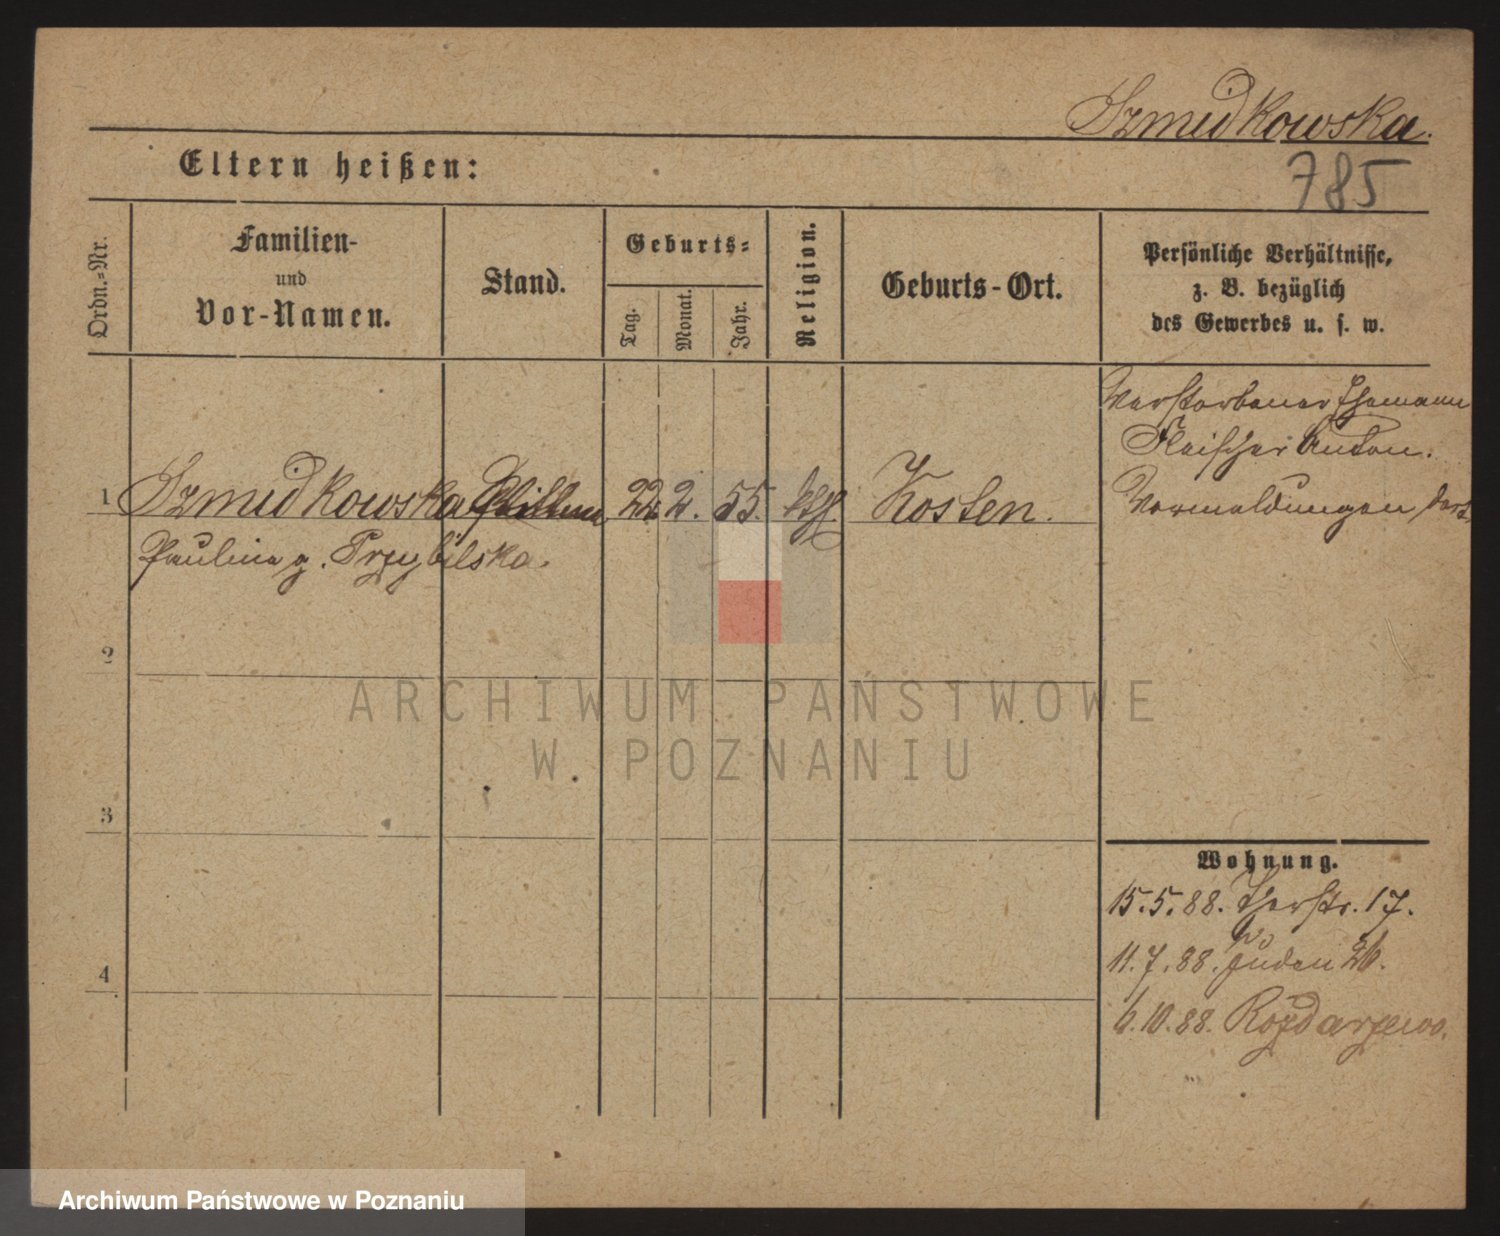 Szmidkowska.
785
Eltern heißen:
Ordn.-Nr.
Familien-
und
Vor-Namen.
Stand.
Geburts-
Tag.
Monat.
Jahr.
Religion.
Geburts-Ort.
Persönliche Verhältnisse,
z. B. bezüglich
des Gewerbes u. s. w.
Verstorbener Ehemann
Fleischer Anton.
Vermeldungen dort
1 Szmidkowska 22. 2. 55. kth. Kosten.
Paulina g. Przybilska.
2
3
4
Wohnung.
15.5.88. Thorstr. 17.
11.7.88. Juden 26.
6.10.88. Rozdarzewo.
ARCHIWUM PAŃSTWOWE
W POZNANIU
Archiwum Państwowe w Poznaniu